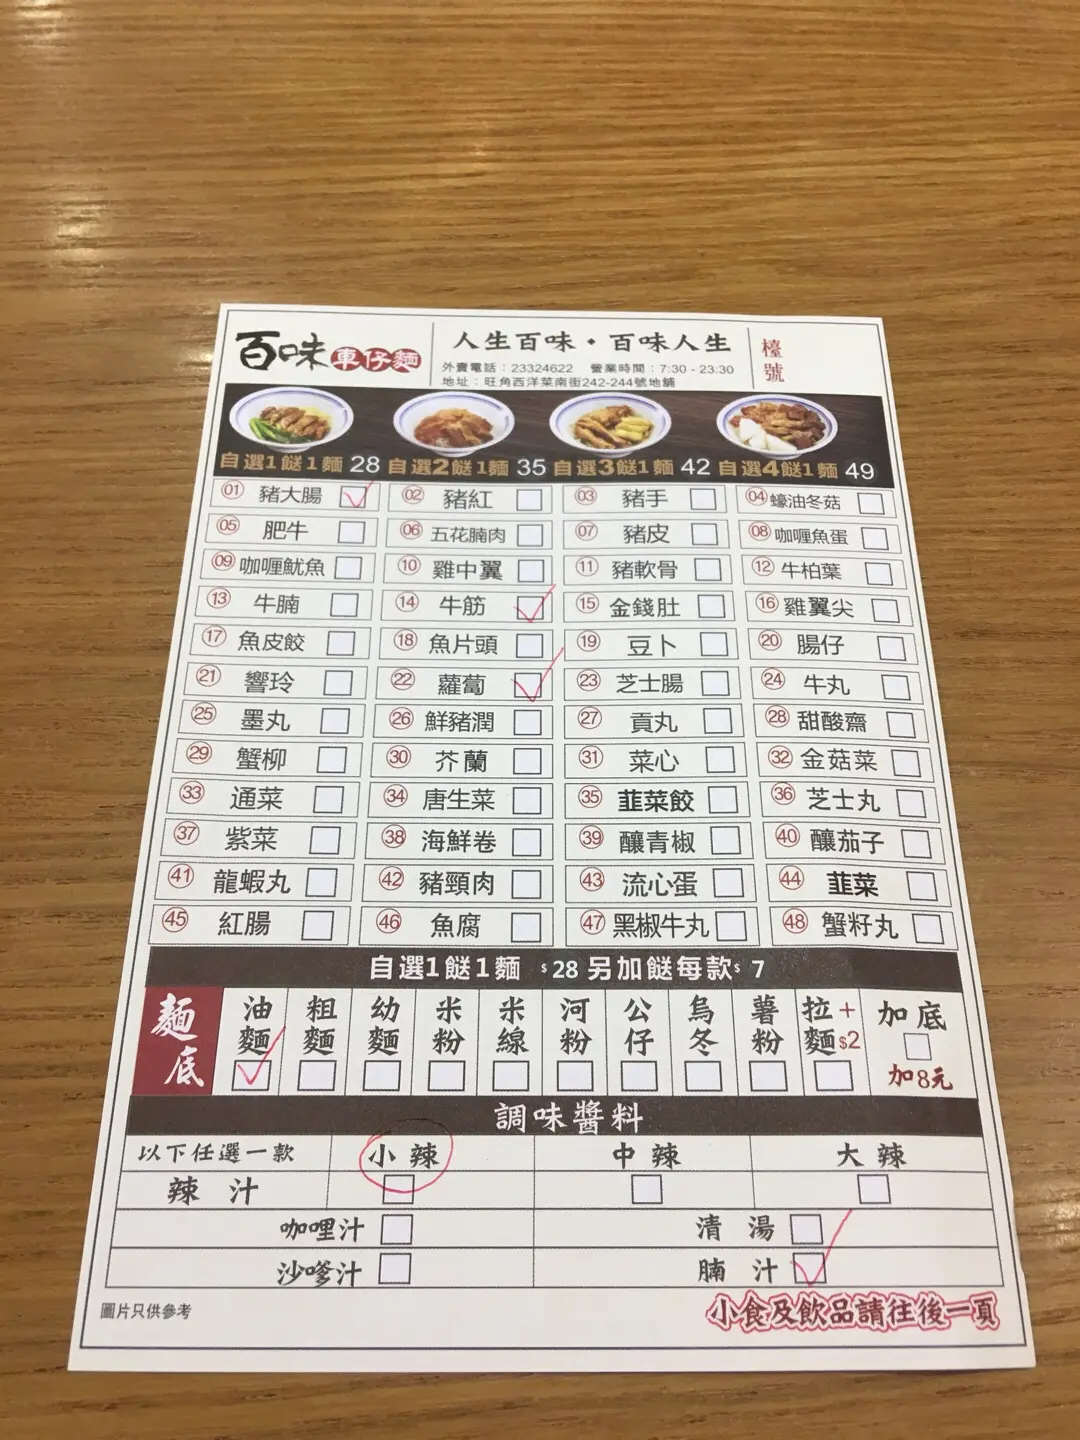 百味車仔麵
人生百味・百味人生
外賣電話：23324622 營業時間：7:30 - 23:30
地址：旺角西洋菜南街242-244號地舖
檯號
自選1餸1麵 28 自選2餸1麵 35 自選3餸1麵 42 自選4餸1麵 49
01 豬大腸 02 豬紅 03 豬手 04 蠔油冬菇
05 肥牛 06 五花腩肉 07 豬皮 08 咖喱魚蛋
09 咖喱魷魚 10 雞中翼 11 豬軟骨 12 牛柏葉
13 牛腩 14 牛筋 15 金錢肚 16 雞翼尖
17 魚皮餃 18 魚片頭 19 豆卜 20 腸仔
21 響玲 22 蘿蔔 23 芝士腸 24 牛丸
25 墨丸 26 鮮豬潤 27 貢丸 28 甜酸齋
29 蟹柳 30 芥蘭 31 菜心 32 金菇菜
33 通菜 34 唐生菜 35 韮菜餃 36 芝士丸
37 紫菜 38 海鮮卷 39 釀青椒 40 釀茄子
41 龍蝦丸 42 豬頸肉 43 流心蛋 44 韮菜
45 紅腸 46 魚腐 47 黑椒牛丸 48 蟹籽丸
自選1餸1麵 $28 另加餸每款$ 7
麵底 油麵 粗麵 幼麵 米粉 米線 河粉 公仔 烏冬 薯粉 拉麵+$2 加底 加8元
調味醬料
以下任選一款 小辣 中辣 大辣
辣汁
咖哩汁 清湯
沙嗲汁 腩汁
圖片只供參考
小食及飲品請往後一頁